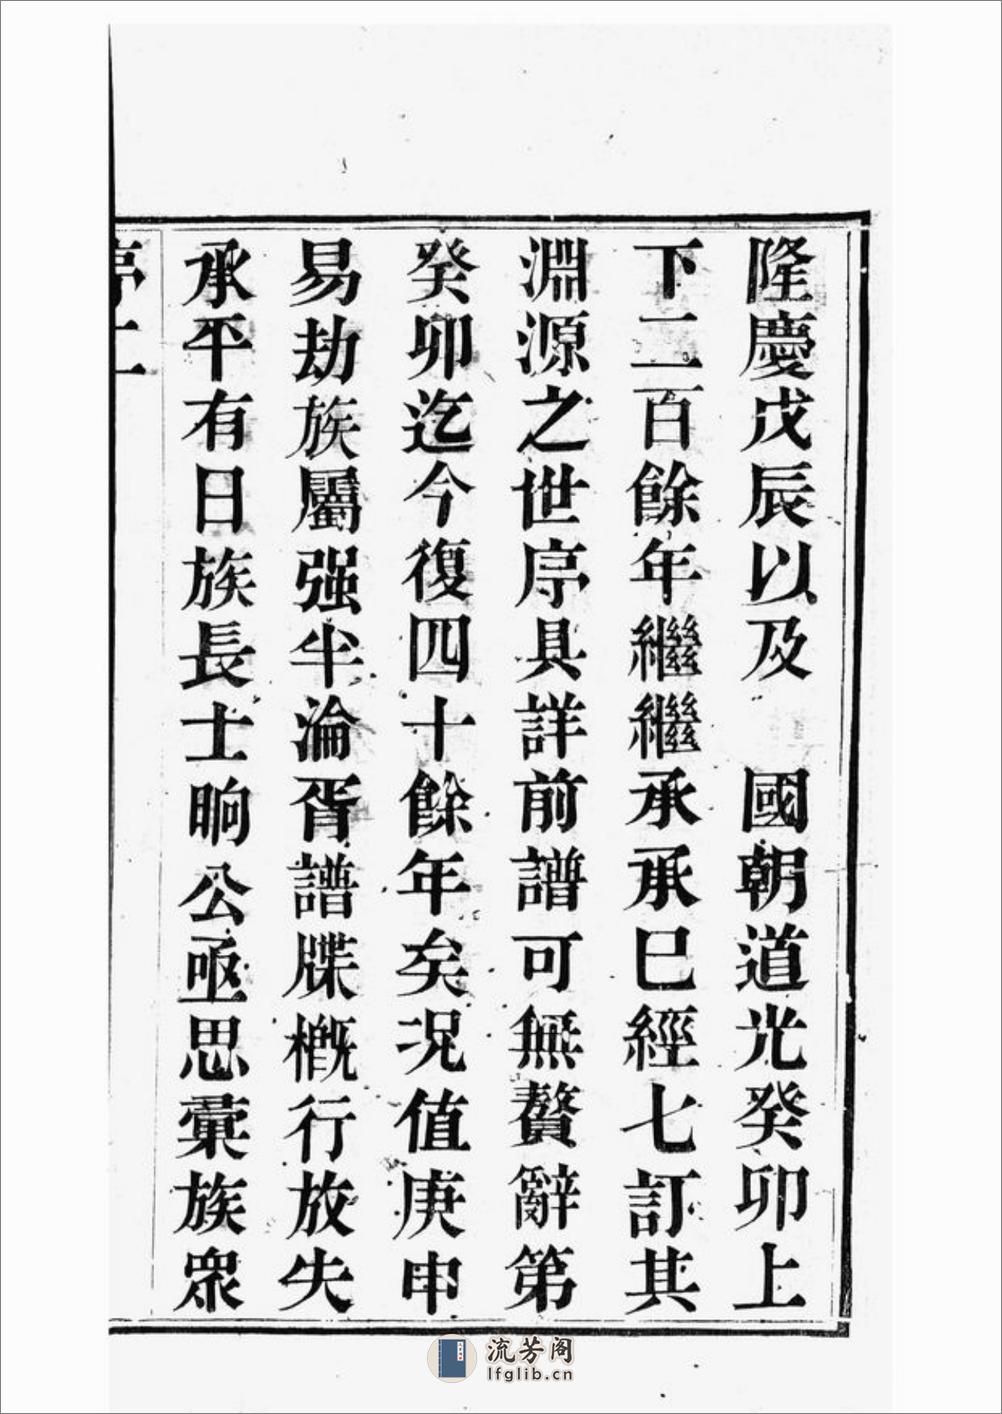 隆慶戊辰以及　國朝道光癸卯上
下二百餘年繼繼承承巳經七訂其
淵源之世序具詳前譜可無贅辭第
癸卯迄今復四十餘年矣況值庚申
易劫族屬强半淪胥譜牒概行放失
承平有日族長士晌公亟思彙族衆
序二
流芳阁
lfglib.cn